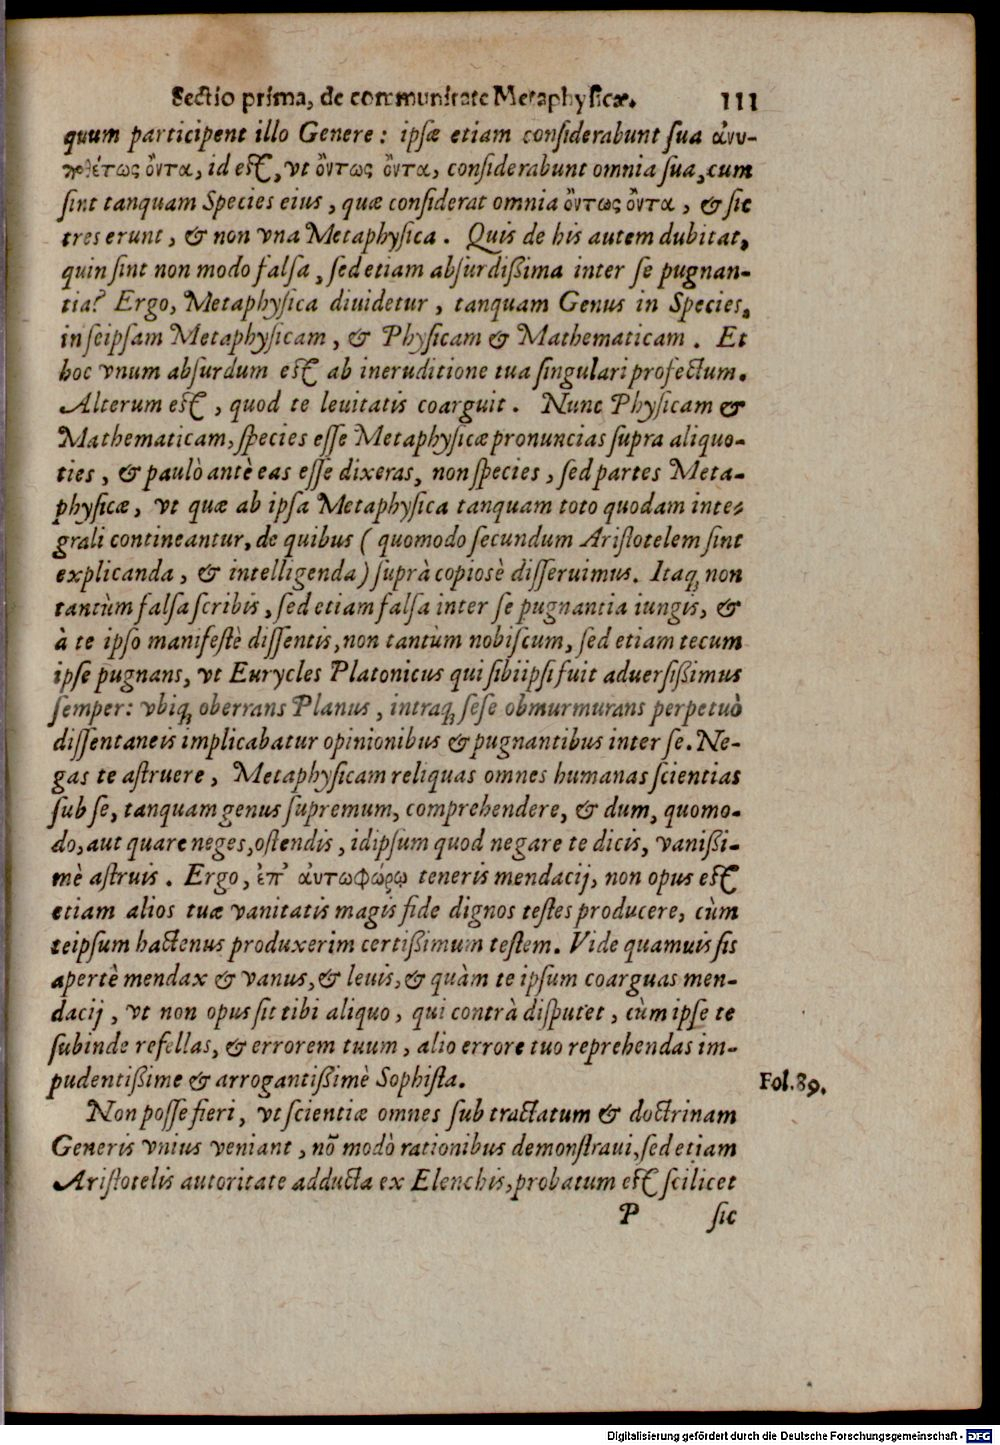 Sectio prima, de communitate Metaphysicæ. 111
quum participent illo Genere: ipsæ etiam considerabunt sua ἀνυ-
ποθέτως ὄντα, id est, vt ὄντως ὄντα, considerabunt omnia sua, cum
sint tanquam Species eius, quæ considerat omnia ὄντως ὄντα, & sic
tres erunt, & non vna Metaphysica. Quis de his autem dubitat,
quin sint non modo falsa, sed etiam absurdißima inter se pugnan-
tia? Ergo, Metaphysica diuidetur, tanquam Genus in Species,
in seipsam Metaphysicam, & Physicam & Mathematicam. Et
hoc vnum absurdum est ab ineruditione tua singulari profectum.
Alterum est, quod te leuitatis coarguit. Nunc Physicam &
Mathematicam, species esse Metaphysicæ pronuncias supra aliquo-
ties, & paulò antè eas esse dixeras, non species, sed partes Meta-
physicæ, vt quæ ab ipsa Metaphysica tanquam toto quodam inte-
grali contineantur, de quibus ( quomodo secundum Aristotelem sint
explicanda, & intelligenda) suprà copiosè disseruimus. Itaq; non
tantùm falsa scribis, sed etiam falsa inter se pugnantia iungis, &
à te ipso manifestè dissentis, non tantùm nobiscum, sed etiam tecum
ipse pugnans, vt Eurycles Platonicus qui sibiipsi fuit aduersißimus
semper: vbiq; oberrans Planus, intraq; sese obmurmurans perpetuò
dissentaneis implicabatur opinionibus & pugnantibus inter se. Ne-
gas te astruere, Metaphysicam reliquas omnes humanas scientias
sub se, tanquam genus supremum, comprehendere, & dum, quomo-
do, aut quare neges, ostendis, idipsum quod negare te dicis, vanißi-
mè astruis. Ergo, ἐπ' ἀυτωφώρῳ teneris mendacij, non opus est
etiam alios tuæ vanitatis magis fide dignos testes producere, cùm
teipsum hactenus produxerim certißimum testem. Vide quamuis sis
apertè mendax & vanus, & leuis, & quàm te ipsum coarguas men-
dacij, vt non opus sit tibi aliquo, qui contrà disputet, cùm ipse te
subinde refellas, & errorem tuum, alio errore tuo reprehendas im-
pudentißime & arrogantißimè Sophista.
Fol. 89.
Non posse fieri, vt scientiæ omnes sub tractatum & doctrinam
Generis vnius veniant, nō modò rationibus demonstraui, sed etiam
Aristotelis autoritate adducta ex Elenchis, probatum est scilicet
P sic
Digitalisierung gefördert durch die Deutsche Forschungsgemeinschaft - DFG